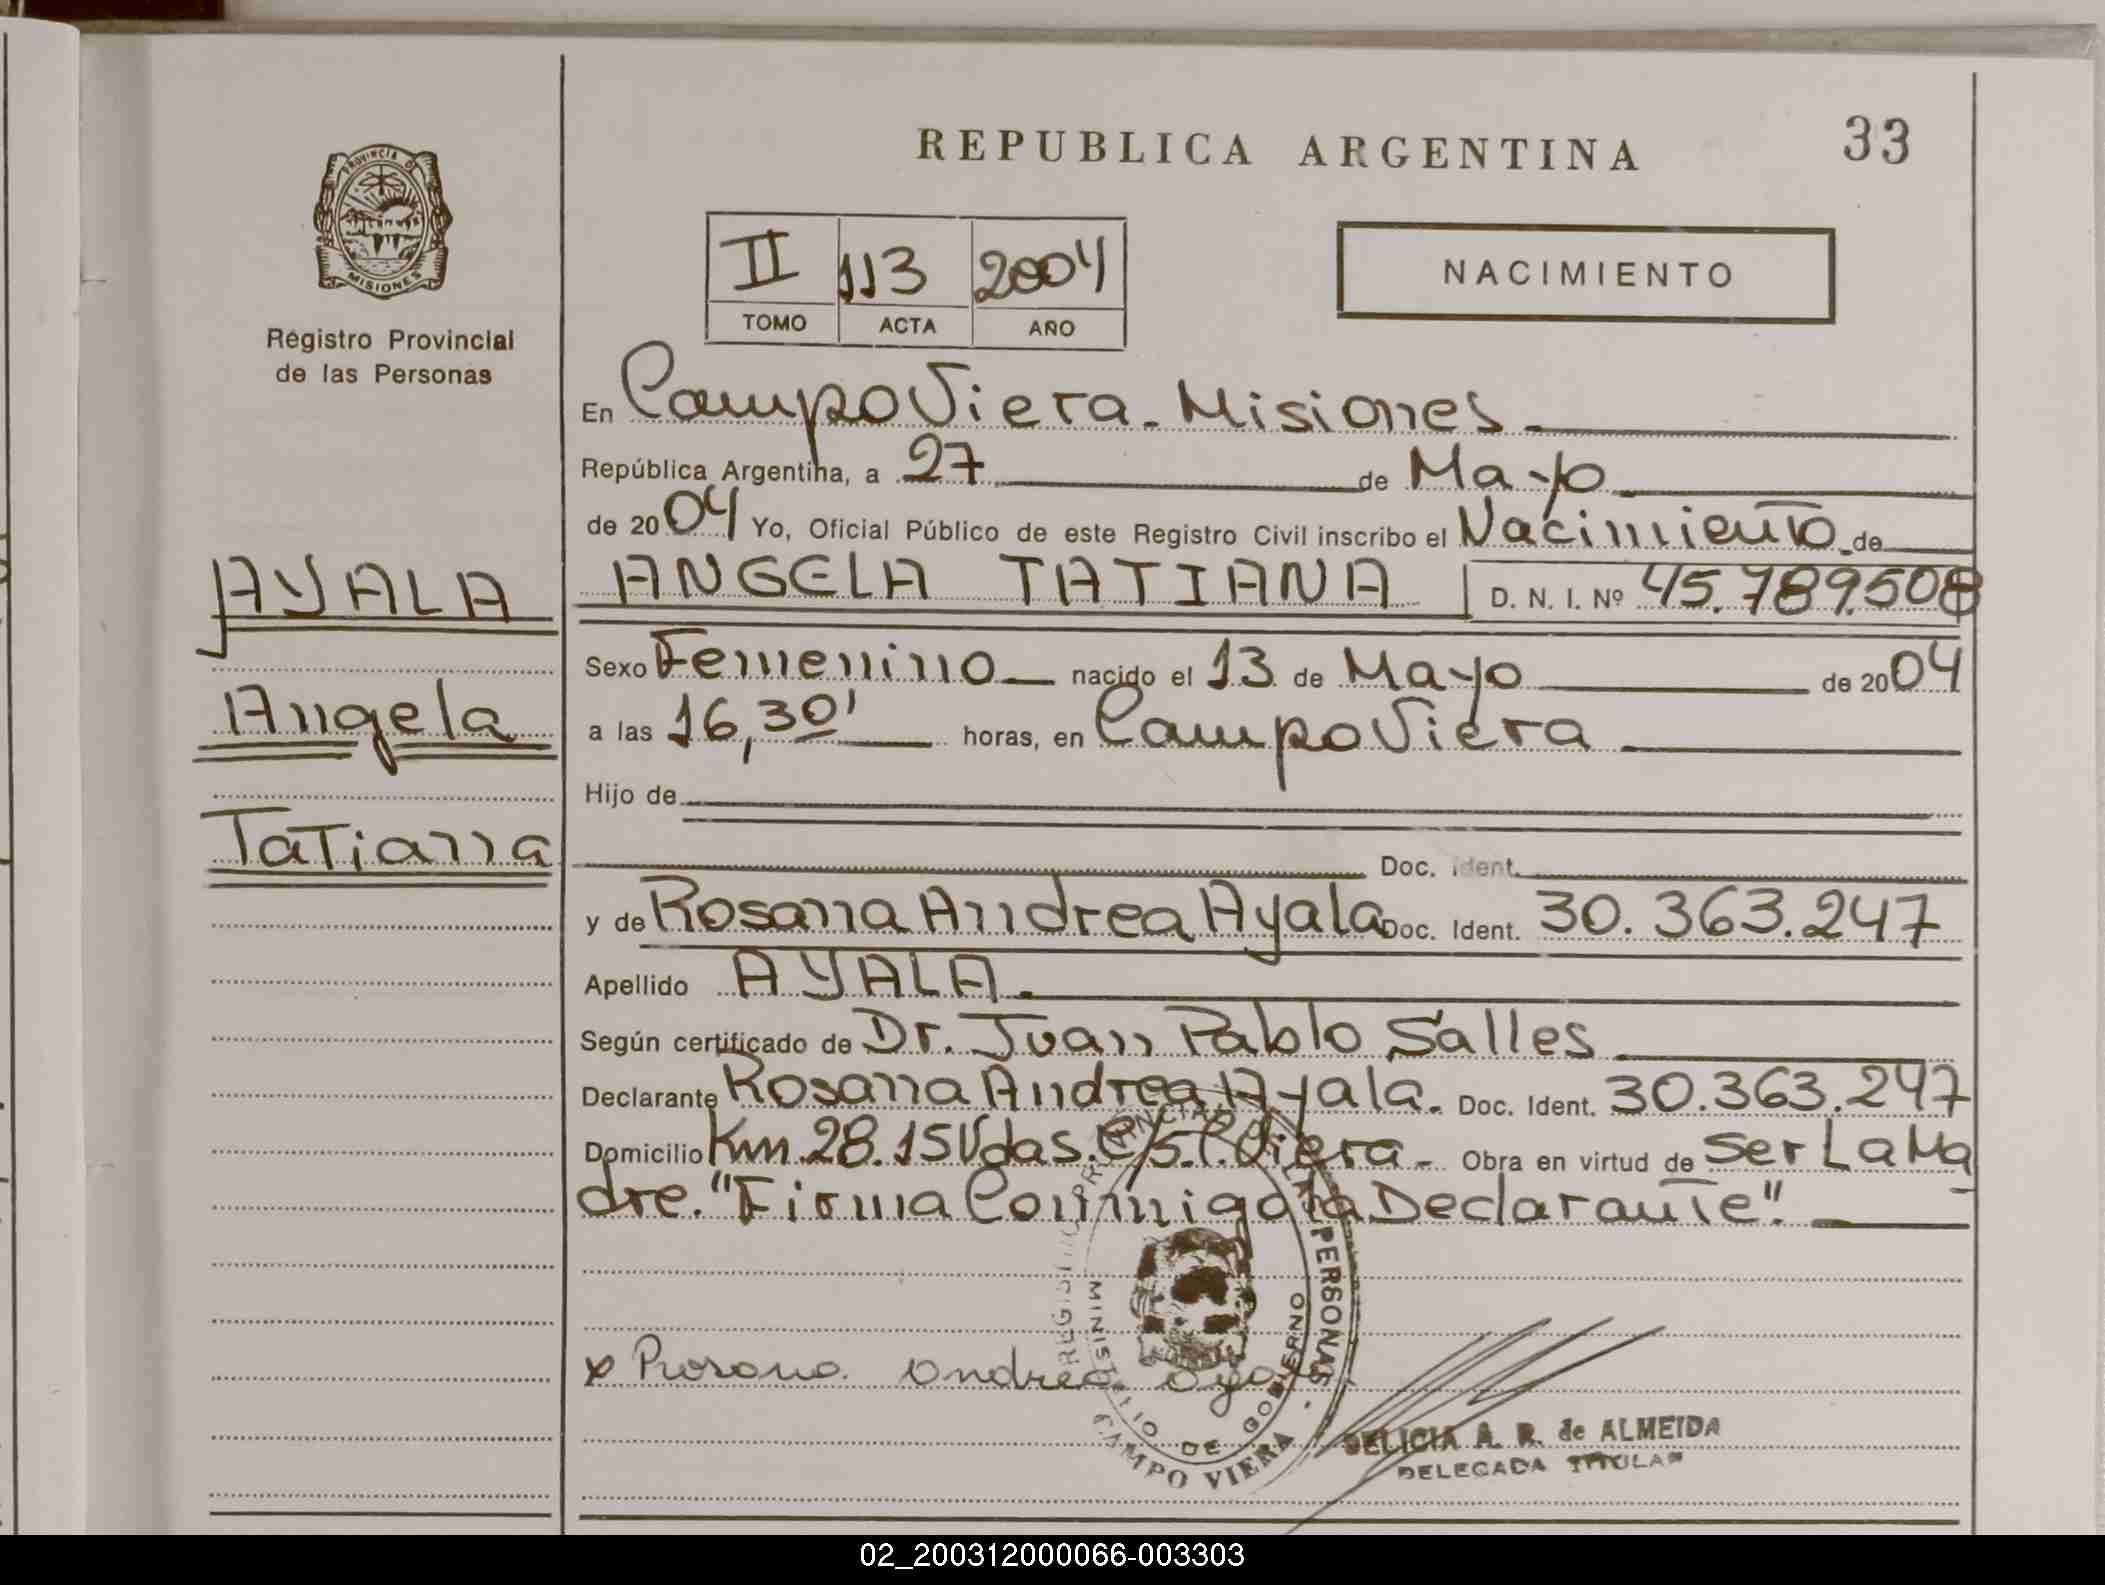 PROVINCIA DE
MISIONES
Registro Provincial
de las Personas
AYALA
Angela
Tatiana
REPUBLICA ARGENTINA
33
II 113 2004
TOMO ACTA AÑO
NACIMIENTO
En Campo Viera - Misiones
República Argentina, a 27 de Mayo
de 2004 Yo, Oficial Público de este Registro Civil inscribo el Nacimiento de
ANGELA TATIANA D. N. I. Nº 45.789.508
Sexo Femenino nacido el 13 de Mayo de 2004
a las 16,30' horas, en Campo Viera
Hijo de
Doc. Ident.
y de Rosana Andrea Ayala Doc. Ident. 30.363.247
Apellido AYALA.
Según certificado de Dr. Juan Pablo Salles
Declarante Rosana Andrea Ayala. Doc. Ident. 30.363.247
Domicilio Km. 28. 15 Vdas. C/5. C. Viera - Obra en virtud de Ser La Ma
dre. "Firma Conmigo la Declarante".
PERSONAS
MINISTERIO DE GOBIERNO
CAMPO VIERA
x Rosana andrea aya
DELICIA A. R. de ALMEIDA
DELEGADA TITULAR
02_200312000066-003303